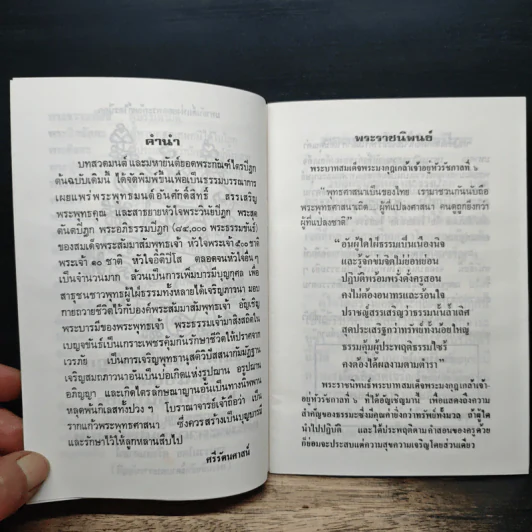 คำนำ
บทสวดมนต์ และมหายันต์ยอดพระกัณฑ์ไตรปิฎก
ต้นฉบับเดิมนี้ ได้จัดพิมพ์ขึ้นเพื่อเป็นธรรมบรรณาการ
เผยแพร่พระพุทธมนต์อันศักดิ์สิทธิ์ สรรเสริญ
พระพุทธคุณ และสายธารหัวใจพระวินัยปิฎก พระสุต
ตันตปิฎก พระอภิธรรมปิฎก (๘๔,๐๐๐ พระธรรมขันธ์)
ของสมเด็จพระสัมมาสัมพุทธเจ้า หัวใจพระเจ้า ๕๐๐ ชาติ
พระเจ้า ๑๐ ชาติ หัวใจอิติปิโส ตลอดจนหัวใจอื่นๆ
เป็นจำนวนมาก ล้วนเป็นการเพิ่มบารมีบุญกุศล เพื่อ
สาธุชนชาวพุทธผู้ใฝ่ธรรมทั้งหลายได้เจริญภาวนา มอบ
กายถวายชีวิตไว้กับองค์พระสัมมาสัมพุทธเจ้า อัญเชิญ
พระบารมีของพระพุทธเจ้า พระธรรมเจ้ามาสิงสถิตใน
เบญจขันธ์เป็นเกราะเพชรคุ้มกันรักษาชีวิตให้ปราศจาก
เวรภัย เป็นการเจริญพุทธานุสติวิปัสสนากัมมัฏฐาน
เจริญสมถภาวนาอันเป็นบ่อเกิดแห่งรูปฌาน อรูปฌาน
อภิญญา และเกิดไตรลักษณญาณอันเป็นทางนิพพาน
หลุดพ้นกิเลสทั้งปวง ฯ โบราณาจารย์เจ้าถือว่า เป็น
รากแก้วพระพุทธศาสนา ซึ่งควรสร้างเป็นบุญบารมี
และรักษาไว้ให้ลูกหลานสืบไป
ศรีรัตนศาสน์
พระราชนิพนธ์
พระบาทสมเด็จพระมงกุฎเกล้าเจ้าอยู่หัวรัชกาลที่ ๖
พุทธศาสนาเป็นของไทย เรามาชวนกันนับถือ
พระพุทธศาสนาเถิด... ผู้ที่แปลงศาสนา คนดูถูกยิ่งกว่า
ผู้ที่แปลงชาติ"
"อันผู้ใดใฝ่ธรรมเป็นเนืองนิจ
และรู้จักข่มจิตไม่ย่อหย่อน
ปฏิบัติพร้อมพรั่งดั่งครูสอน
คงไม่ต้องอนาทรและร้อนใจ
ปราชญ์สรรเสริญว่าธรรมนั้นล้ำเลิศ
สุดประเสริฐกว่าทรัพย์ทั้งน้อยใหญ่
ธรรมคุ้มผู้ประพฤติธรรมไซร้
คงต้องได้ผลงามตามตำรา"
พระราชนิพนธ์พระบาทสมเด็จพระมงกุฎเกล้าเจ้า-
อยู่หัวรัชกาลที่ ๖ ที่ได้อัญเชิญมานี้ เพื่อแสดงถึงความ
สำคัญของธรรมะซึ่งมีคุณค่ายิ่งกว่าทรัพย์ทั้งมวล ถ้าผู้ใด
นำไปปฏิบัติ และได้ประพฤติตามคำสอนของครูด้วย
ก็ย่อมจะประสบแต่ความสุขความเจริญโดยส่วนเดียว